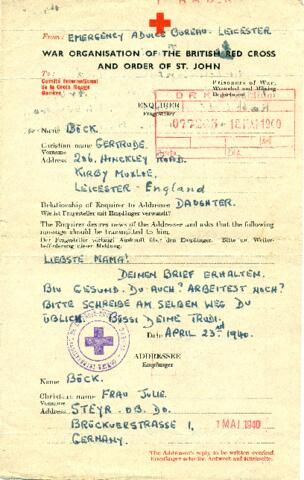 From: EMERGENCY ADVICE BUREAU. LEICESTER
WAR ORGANISATION OF THE BRITISH RED CROSS
AND ORDER OF ST. JOHN
To:
Comité International
de la Croix Rouge
Genève
Prisoners of War,
Wounded and Missing
Department
ENQUIRER
Fragesteller
077203 18 MAI 1940
Name BÖCK.
Christian name GERTRUDE.
Vorname
Address 206, HINCKLEY ROAD.
KIRBY MUXLOE.
LEICESTER - England
Relationship of Enquirer to Addressee DAUGHTER.
Wie ist Fragesteller mit Empfänger verwandt?
The Enquirer desires news of the Addressee and asks that the following
message should be transmitted to him.
Der Fragesteller verlangt Auskunft über den Empfänger. Bitte um Weiter-
beförderung dieser Meldung.
LIEBSTE MAMA!
DEINEN BRIEF ERHALTEN.
BIN GESUND. DU AUCH? ARBEITEST NOCH?
BITTE SCHREIBE AM SELBEN WEG DU
ÜBLICH. BUSSI DEINE TRUDI.
Date APRIL 23rd 1940.
ADDRESSEE
Empfänger
Name BÖCK.
Christian name FRAU JULIE.
Vorname
Address STEYR. OB. DO.
BRÜCKNERSTRASSE 1,
GERMANY.
1 MAI 1940
The Addressee's reply to be written overleaf.
Empfänger schreibe Antwort auf Rückseite.